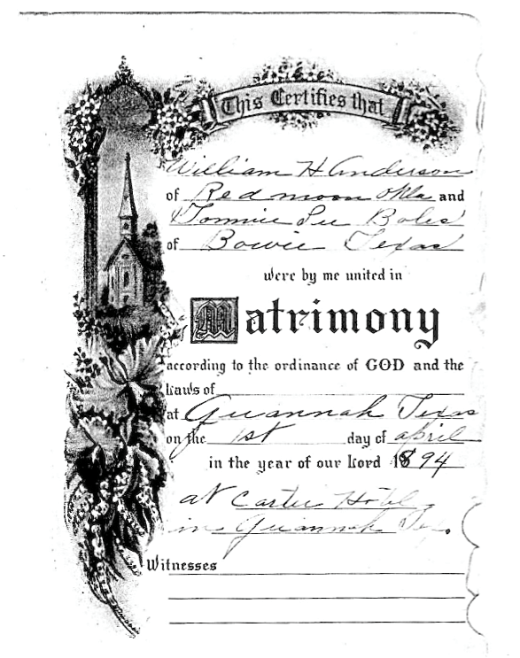 This Certifies that
William H Anderson
of Redmoon Okla and
Tommie Lee Boles
of Bowie Texas
were by me united in
Matrimony
according to the ordinance of GOD and the
Laws of
at Quannah Texas
on the 1st day of april
in the year of our Lord 1894
at Carter Hotel
in Quannah Tex.
Witnesses